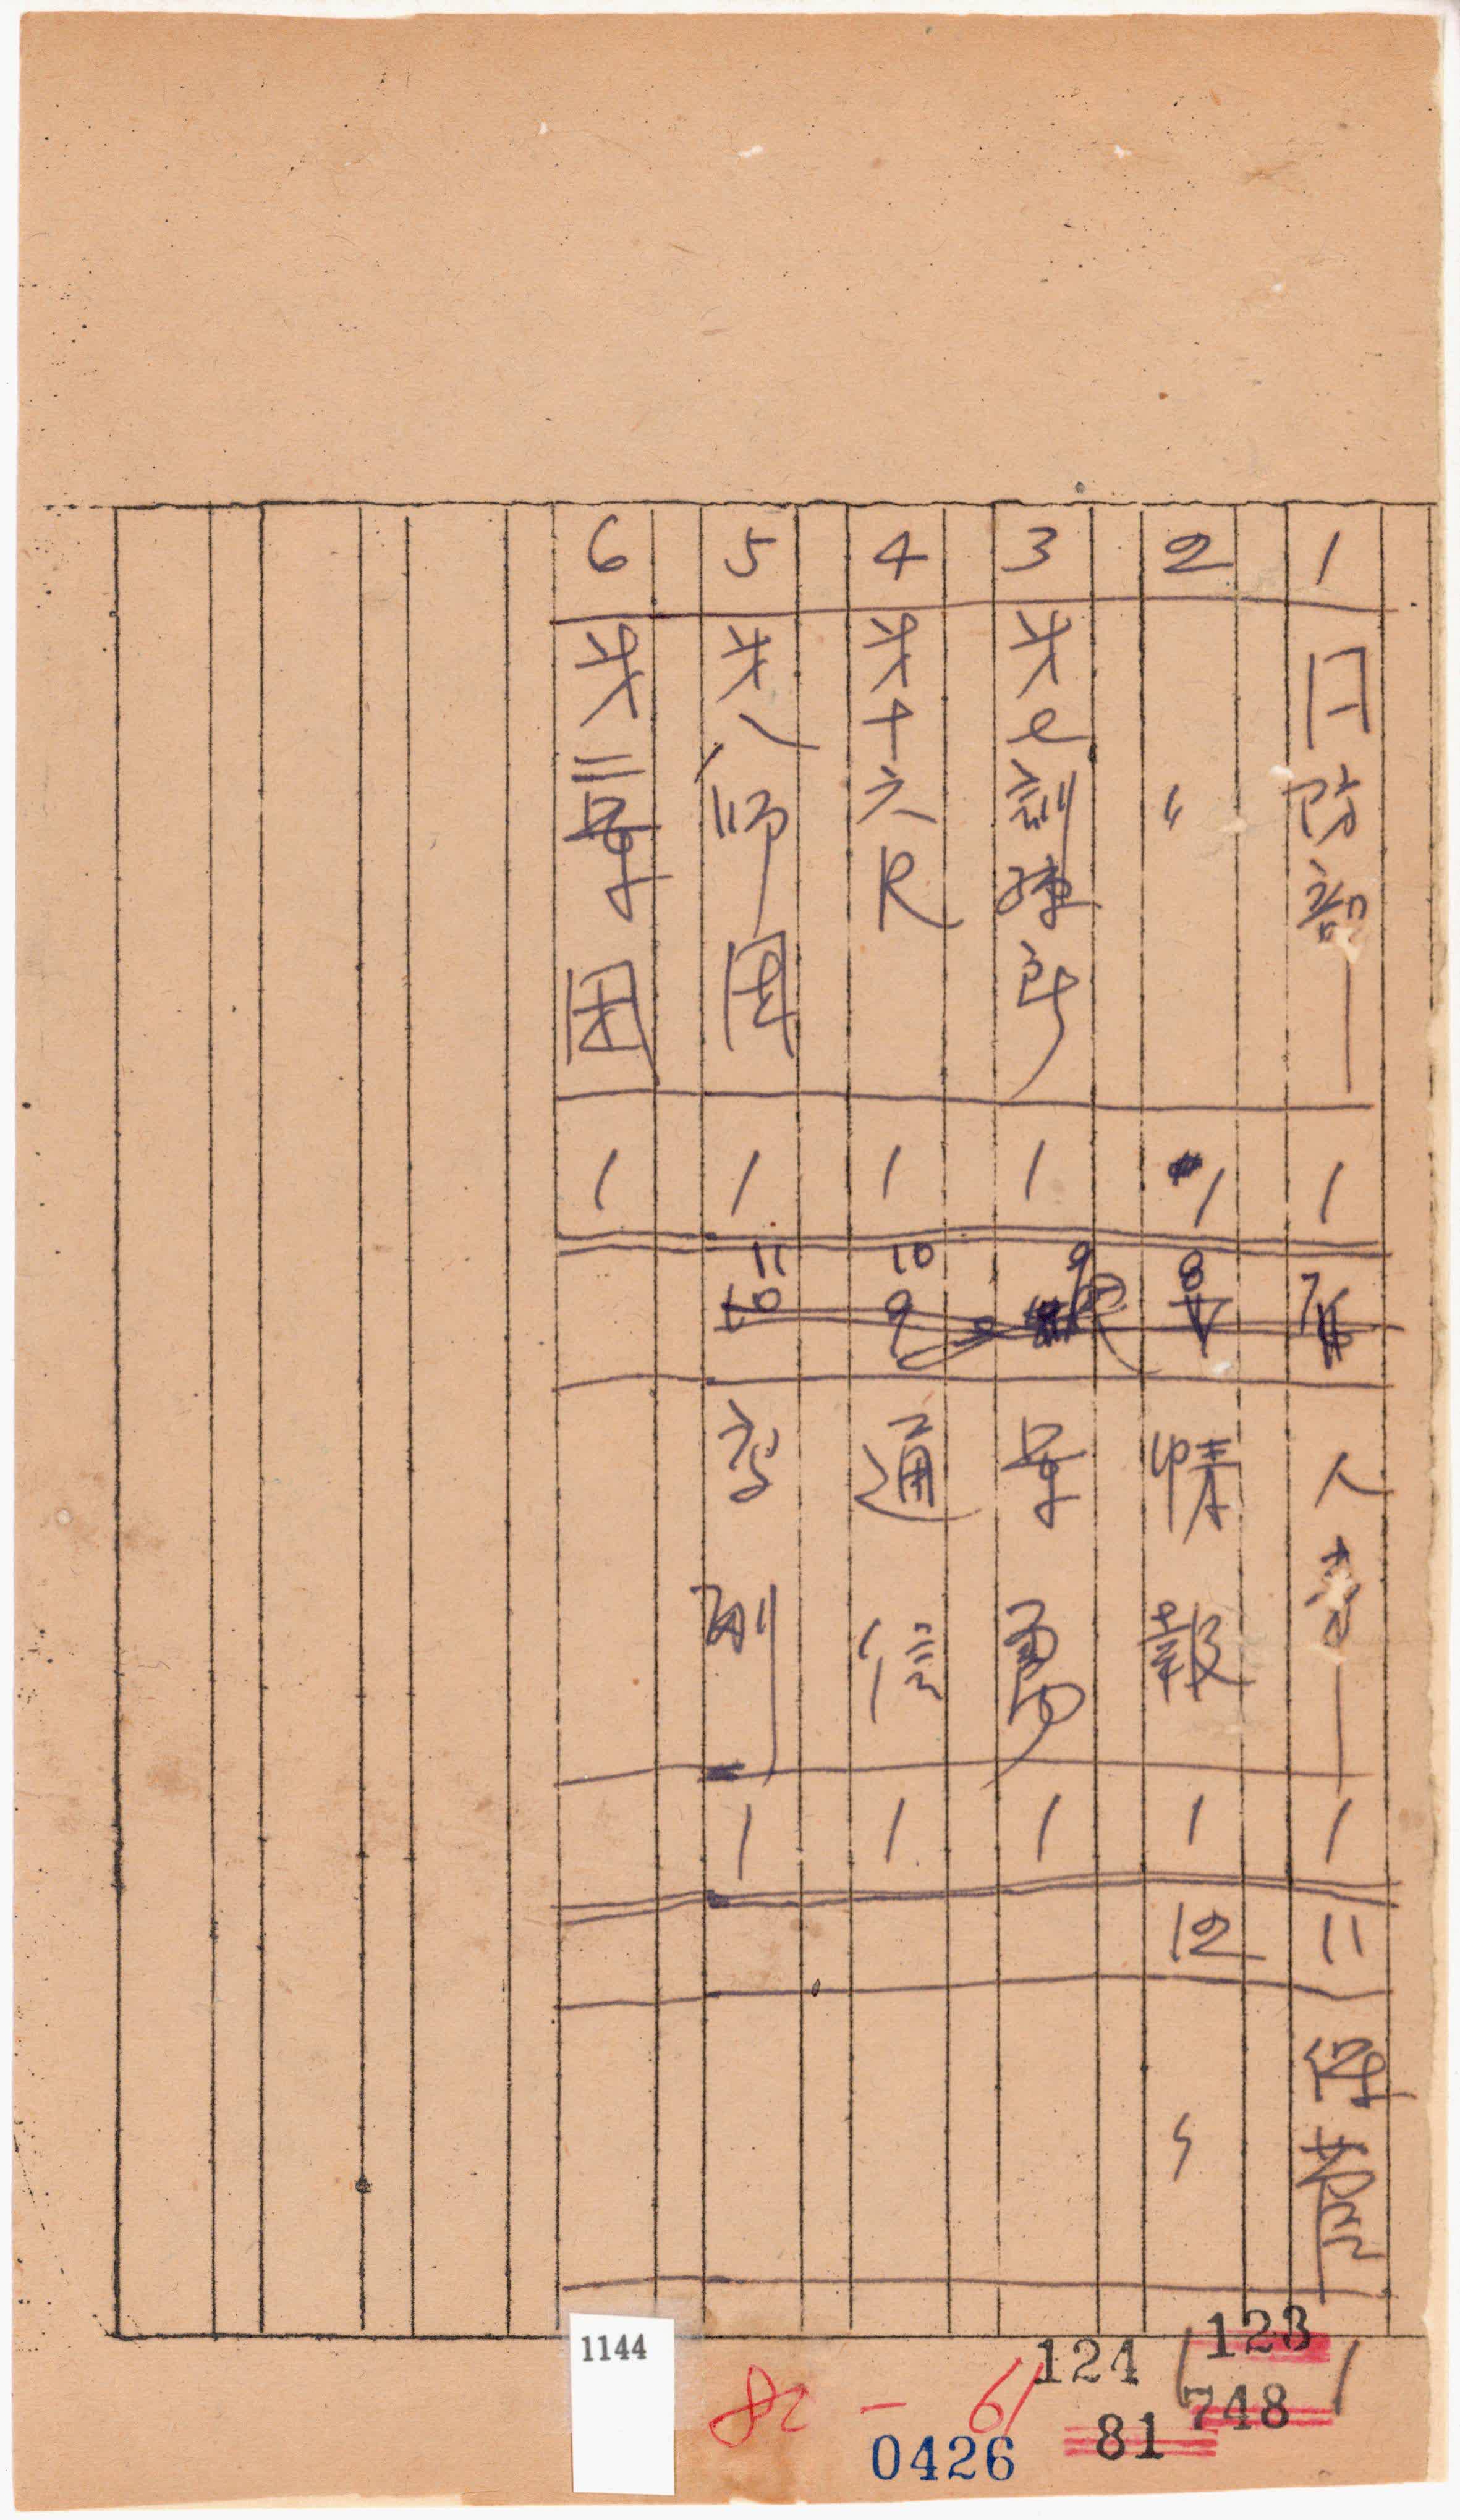 1 国防部— 1 7 人事— 1 11 保管 1
2 〃 1 8 情報 1 12 〃 1
3 第七訓練所 1 9 軍務 1
4 第十六R 1 10 9 通信 1
5 第八師団 1 11 10 高副 1
6 第三軍団 1
123
124
748
81
1144
82 - 61
0426